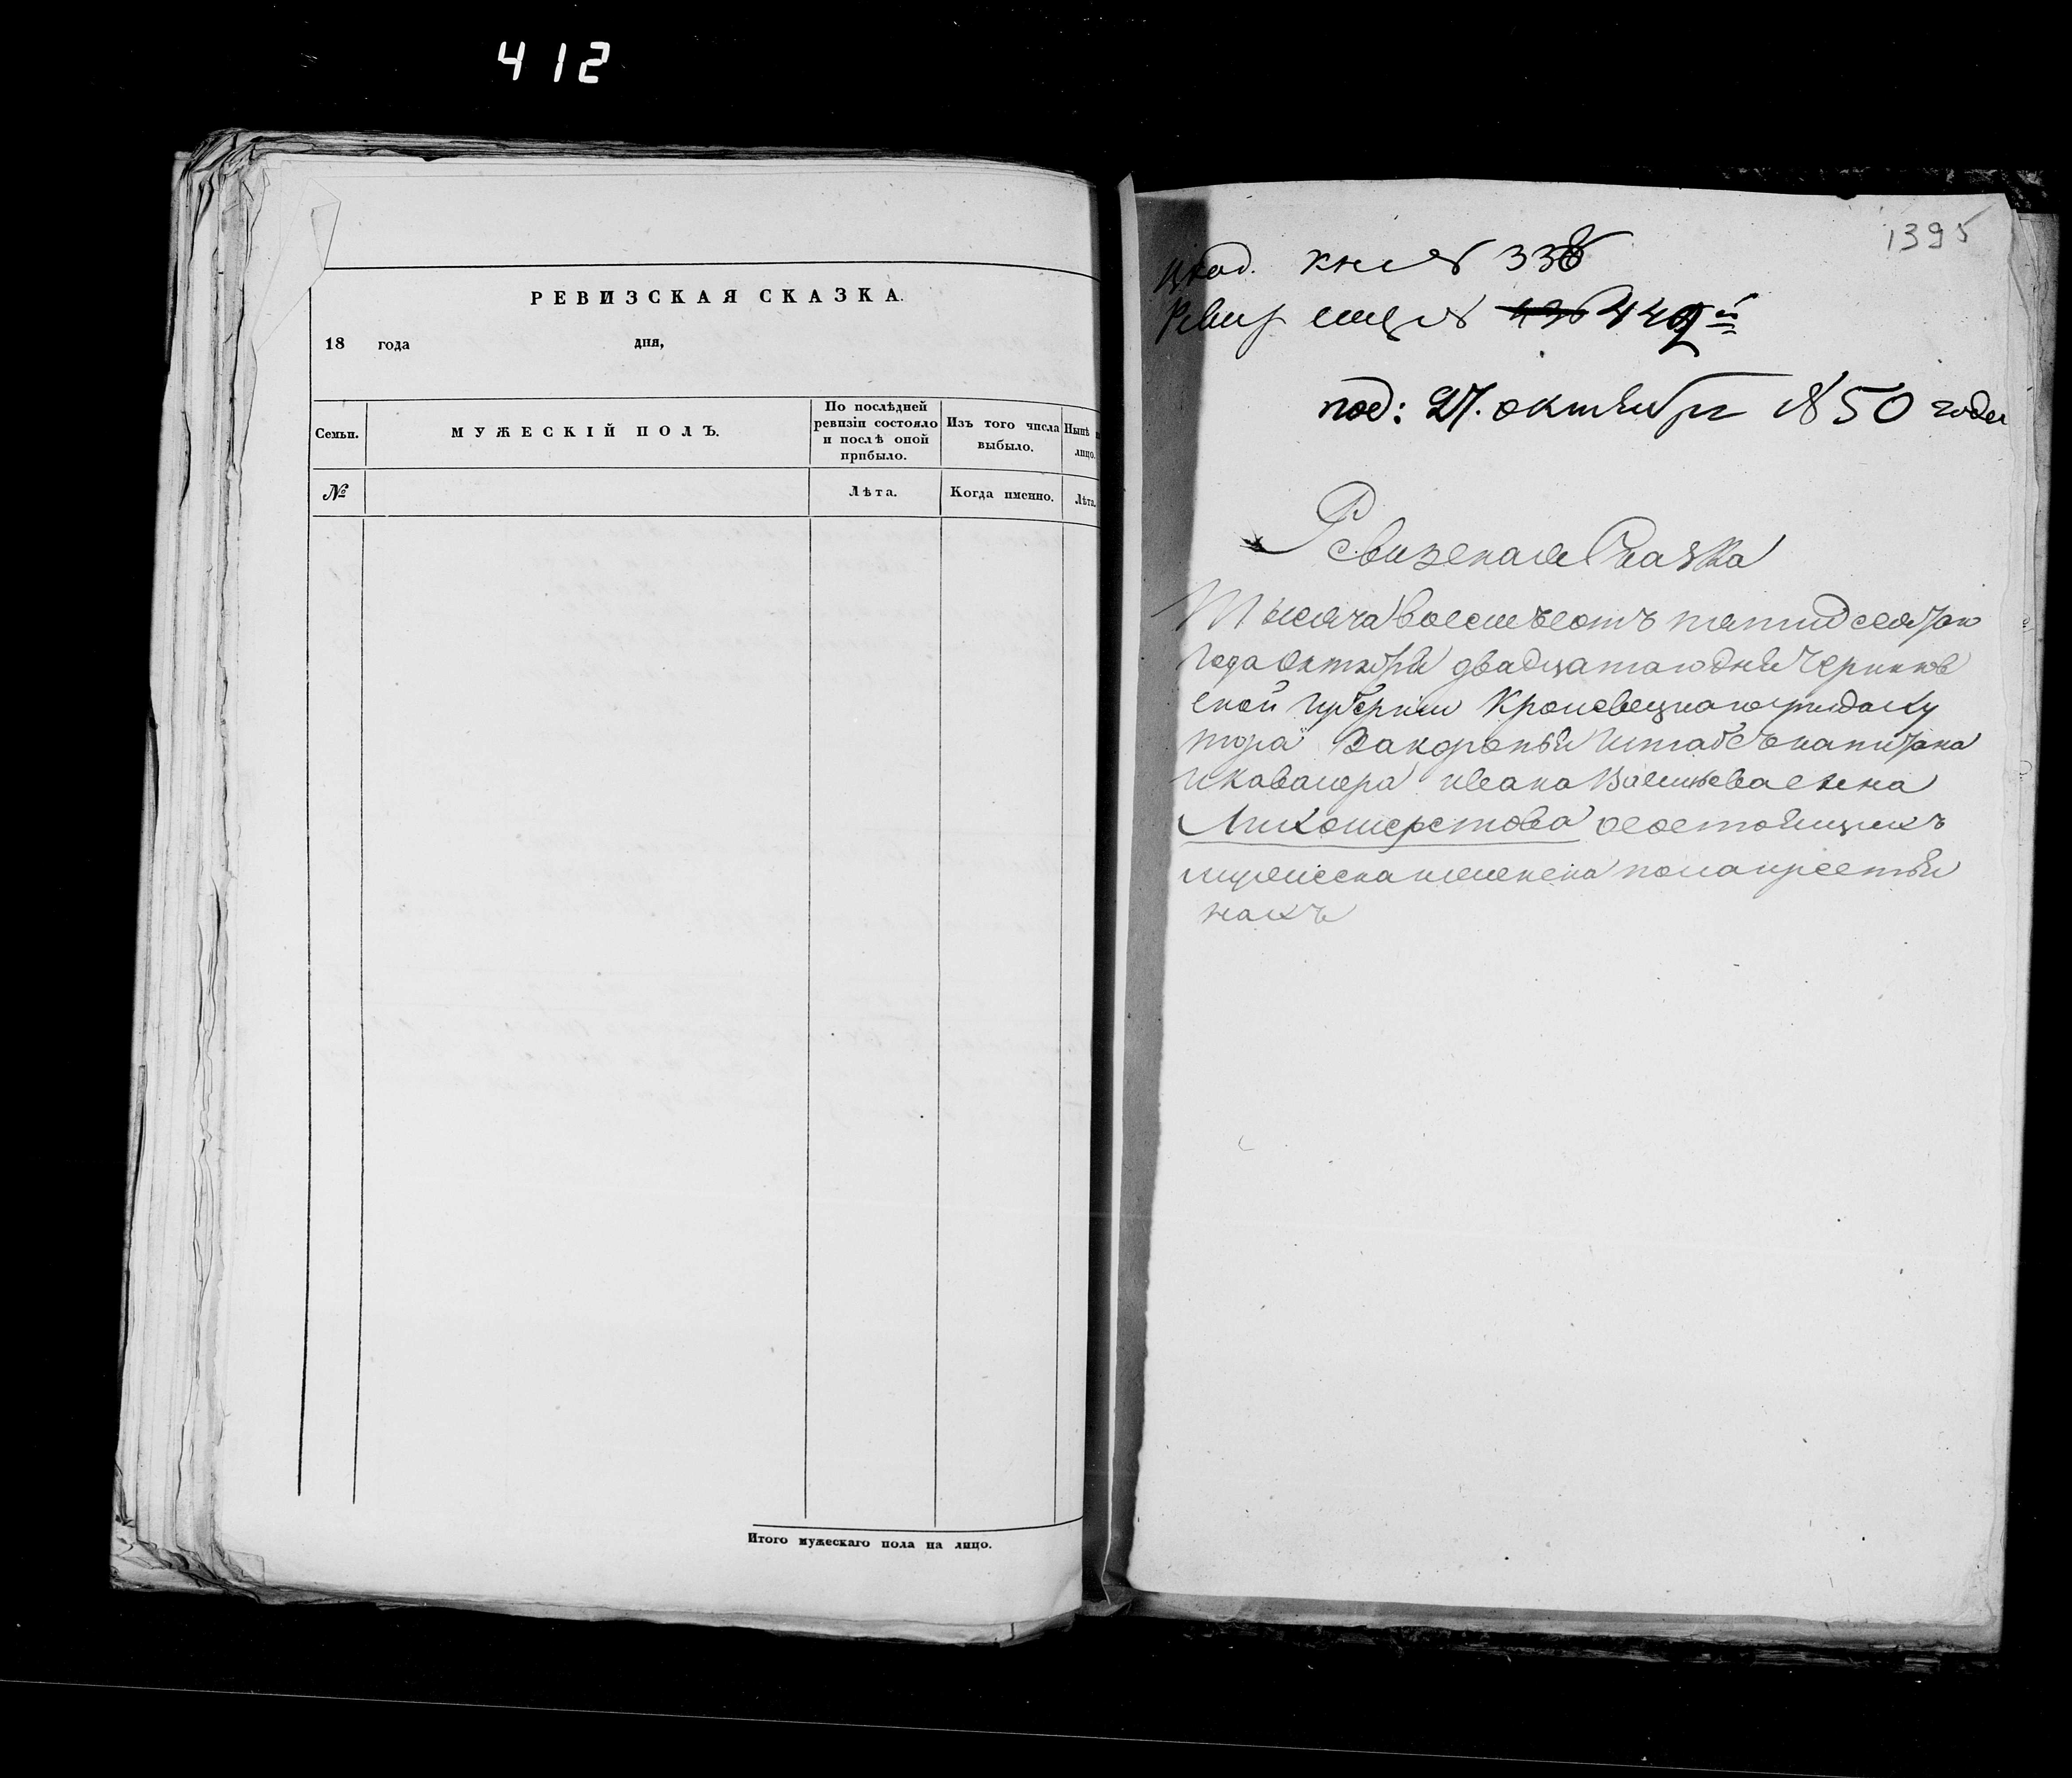 412
РЕВИЗСКАЯ СКАЗКА.
18 года дня,
Семьи.
МУЖЕСКІЙ ПОЛЪ.
По послѣдней ревизіи состояло и послѣ оной прибыло.
Изъ того числа выбыло.
Нынѣ лицо.
№
Лѣта.
Когда именно.
Лѣта.
Итого мужескаго пола на лицо.
1395
кн № 338
под: 27. октября 1850 года
Ревизская Сказка
Тысяча восемъсотъ пятидесятаго
года октября двадцатаго дня Чернигов
ской губерніи Кролевецкаго уезда ху
тора штабсъ капитана
и кавалера Ивана Васильева сына
Лихошерстова о состоящихъ
мужеска и женска пола крестья
нахъ